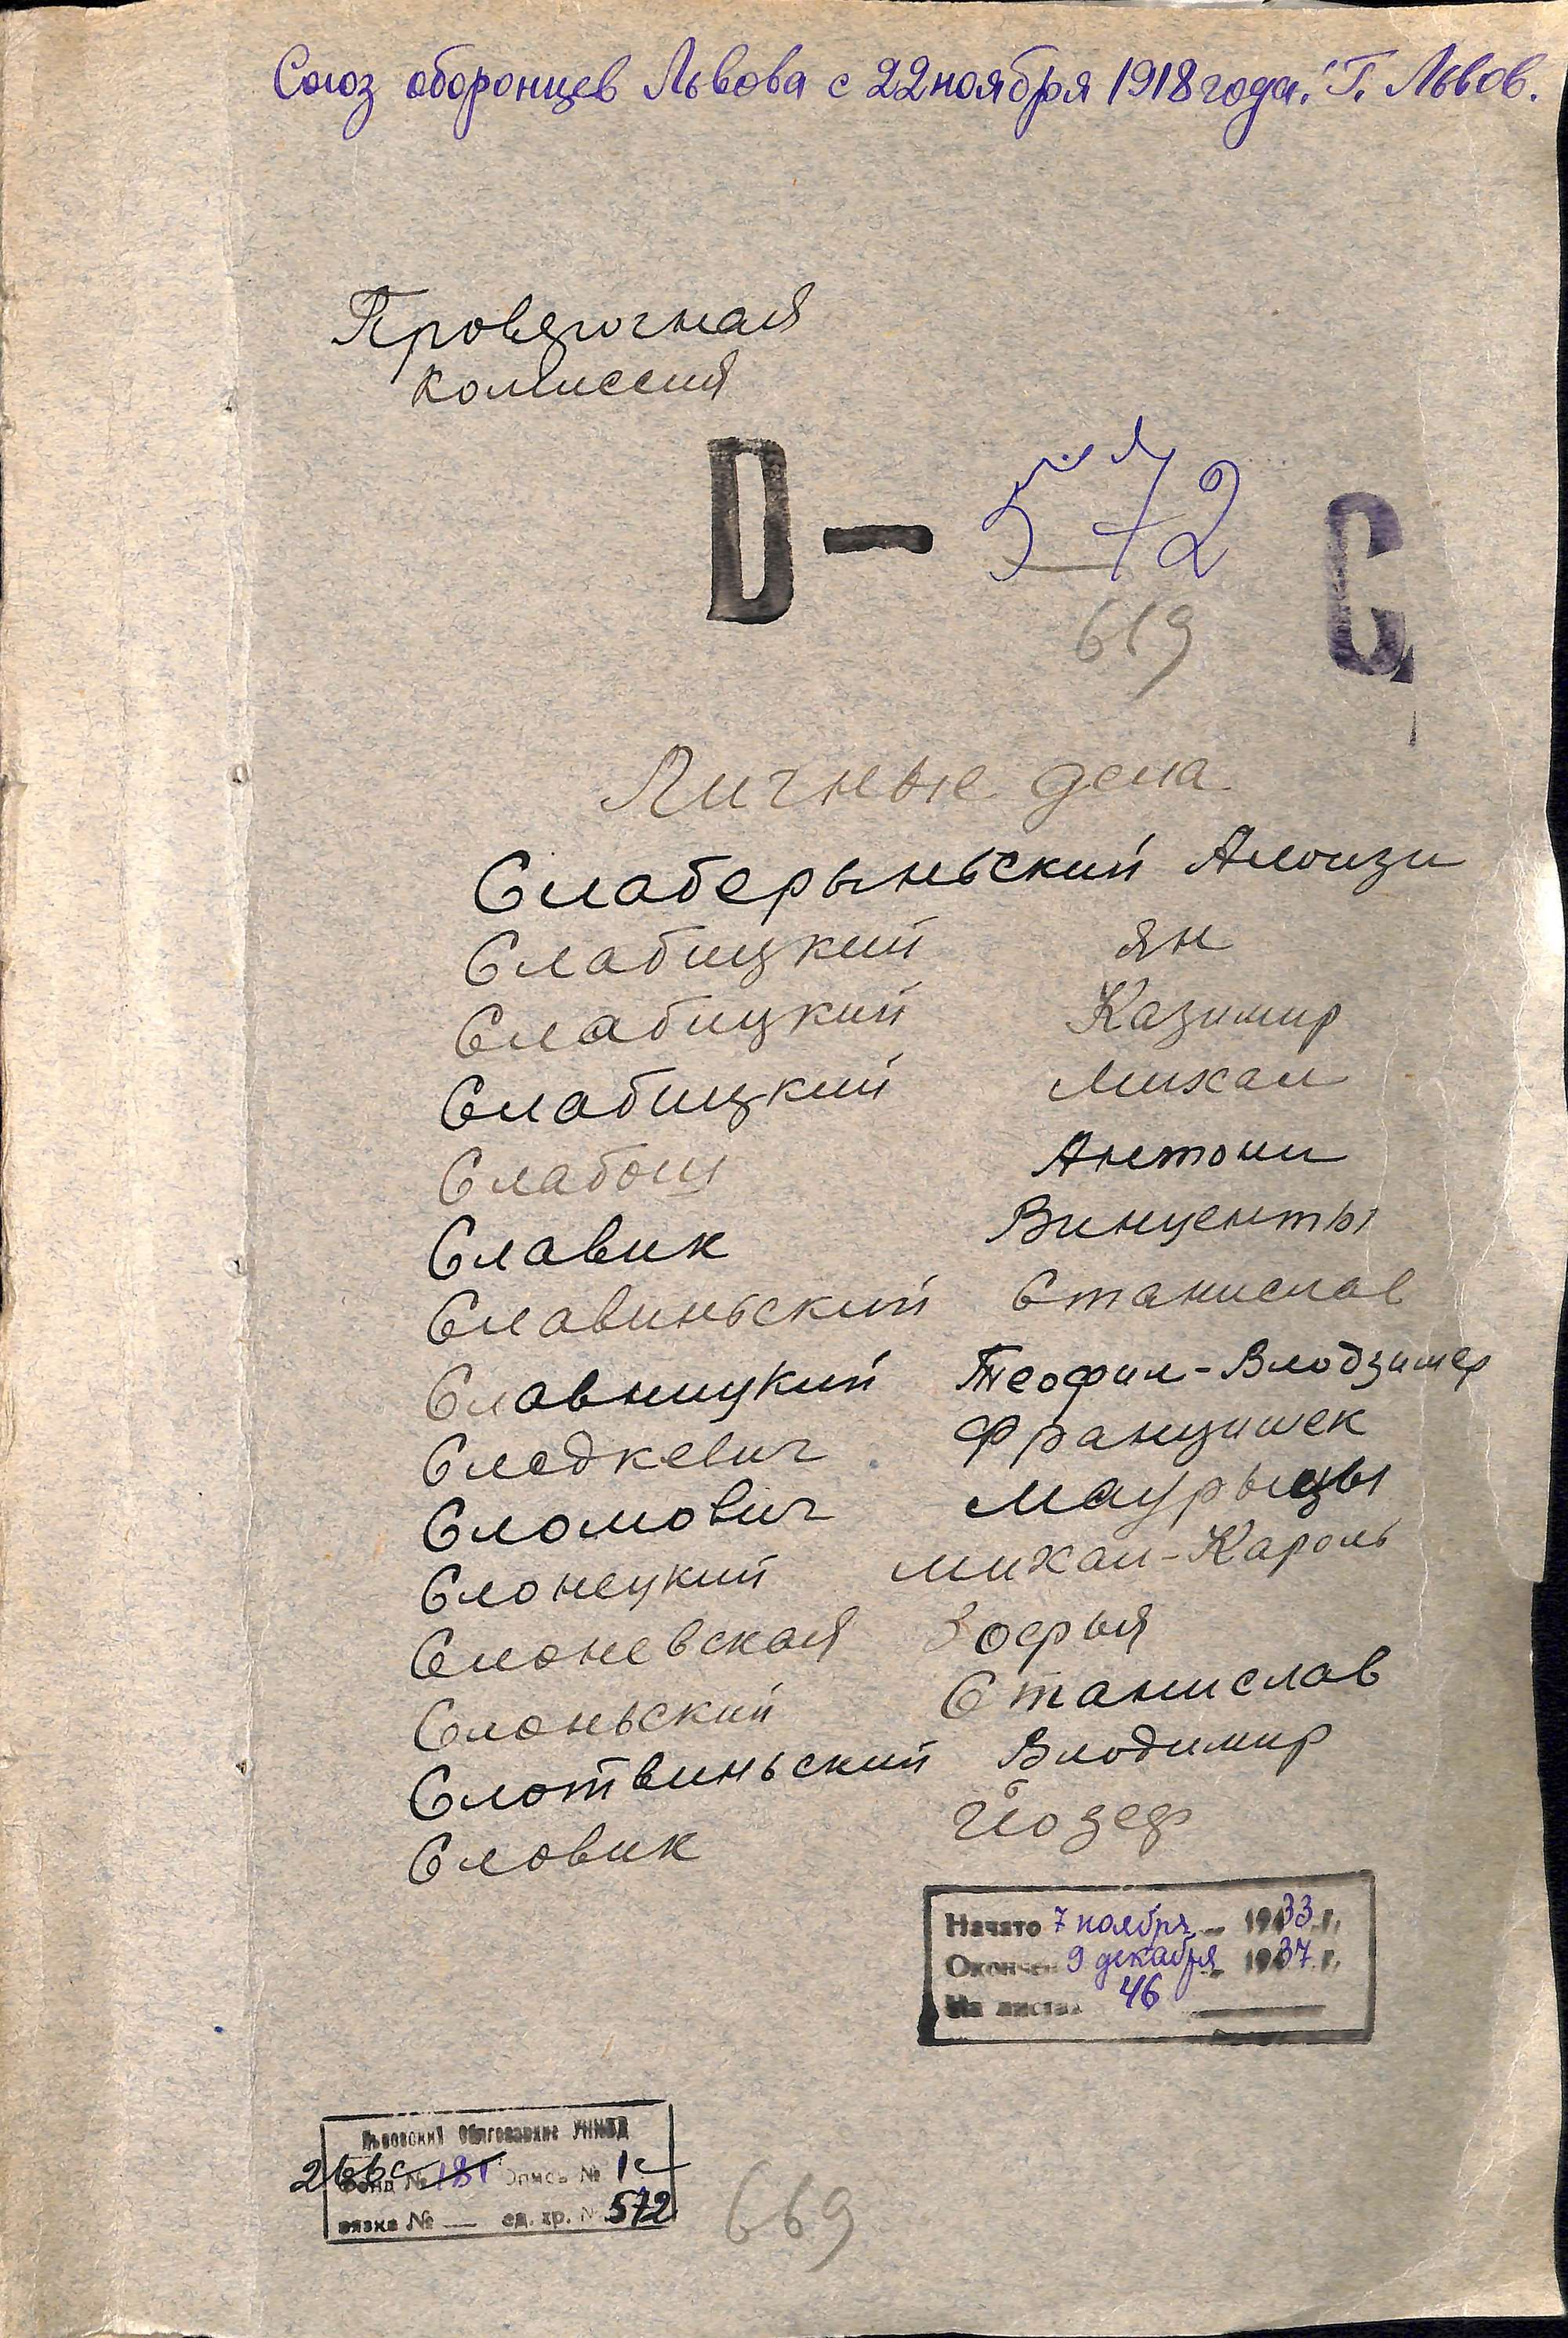 Союз оборонцев Львова с 22 ноября 1918 года." Г. Львов.
Провярочная
комиссия
D — 572
С
619
Личные дела
Слаберыньский Алоизи
Слабицкий Ян
Слабицкий Казимир
Слабицкий Михал
Слабош Антони
Славик Винценты
Славиньский Станислав
Славницкий Теофил-Влодзимер
Следкевич Францишек
Сломович Маурыцы
Слонецкий Михал-Кароль
Слоневская Зофья
Слоньский Станислав
Слотвиньский Влодимир
Словик Йозеф
Начато 7 ноября 1933 г.
Окончен 9 декабря 1937 г.
На листах 46
Львовский Облгосархив УНКВД
266с Фонд № 181 Опись № 1с
вязка № — ед. хр. № 572
669